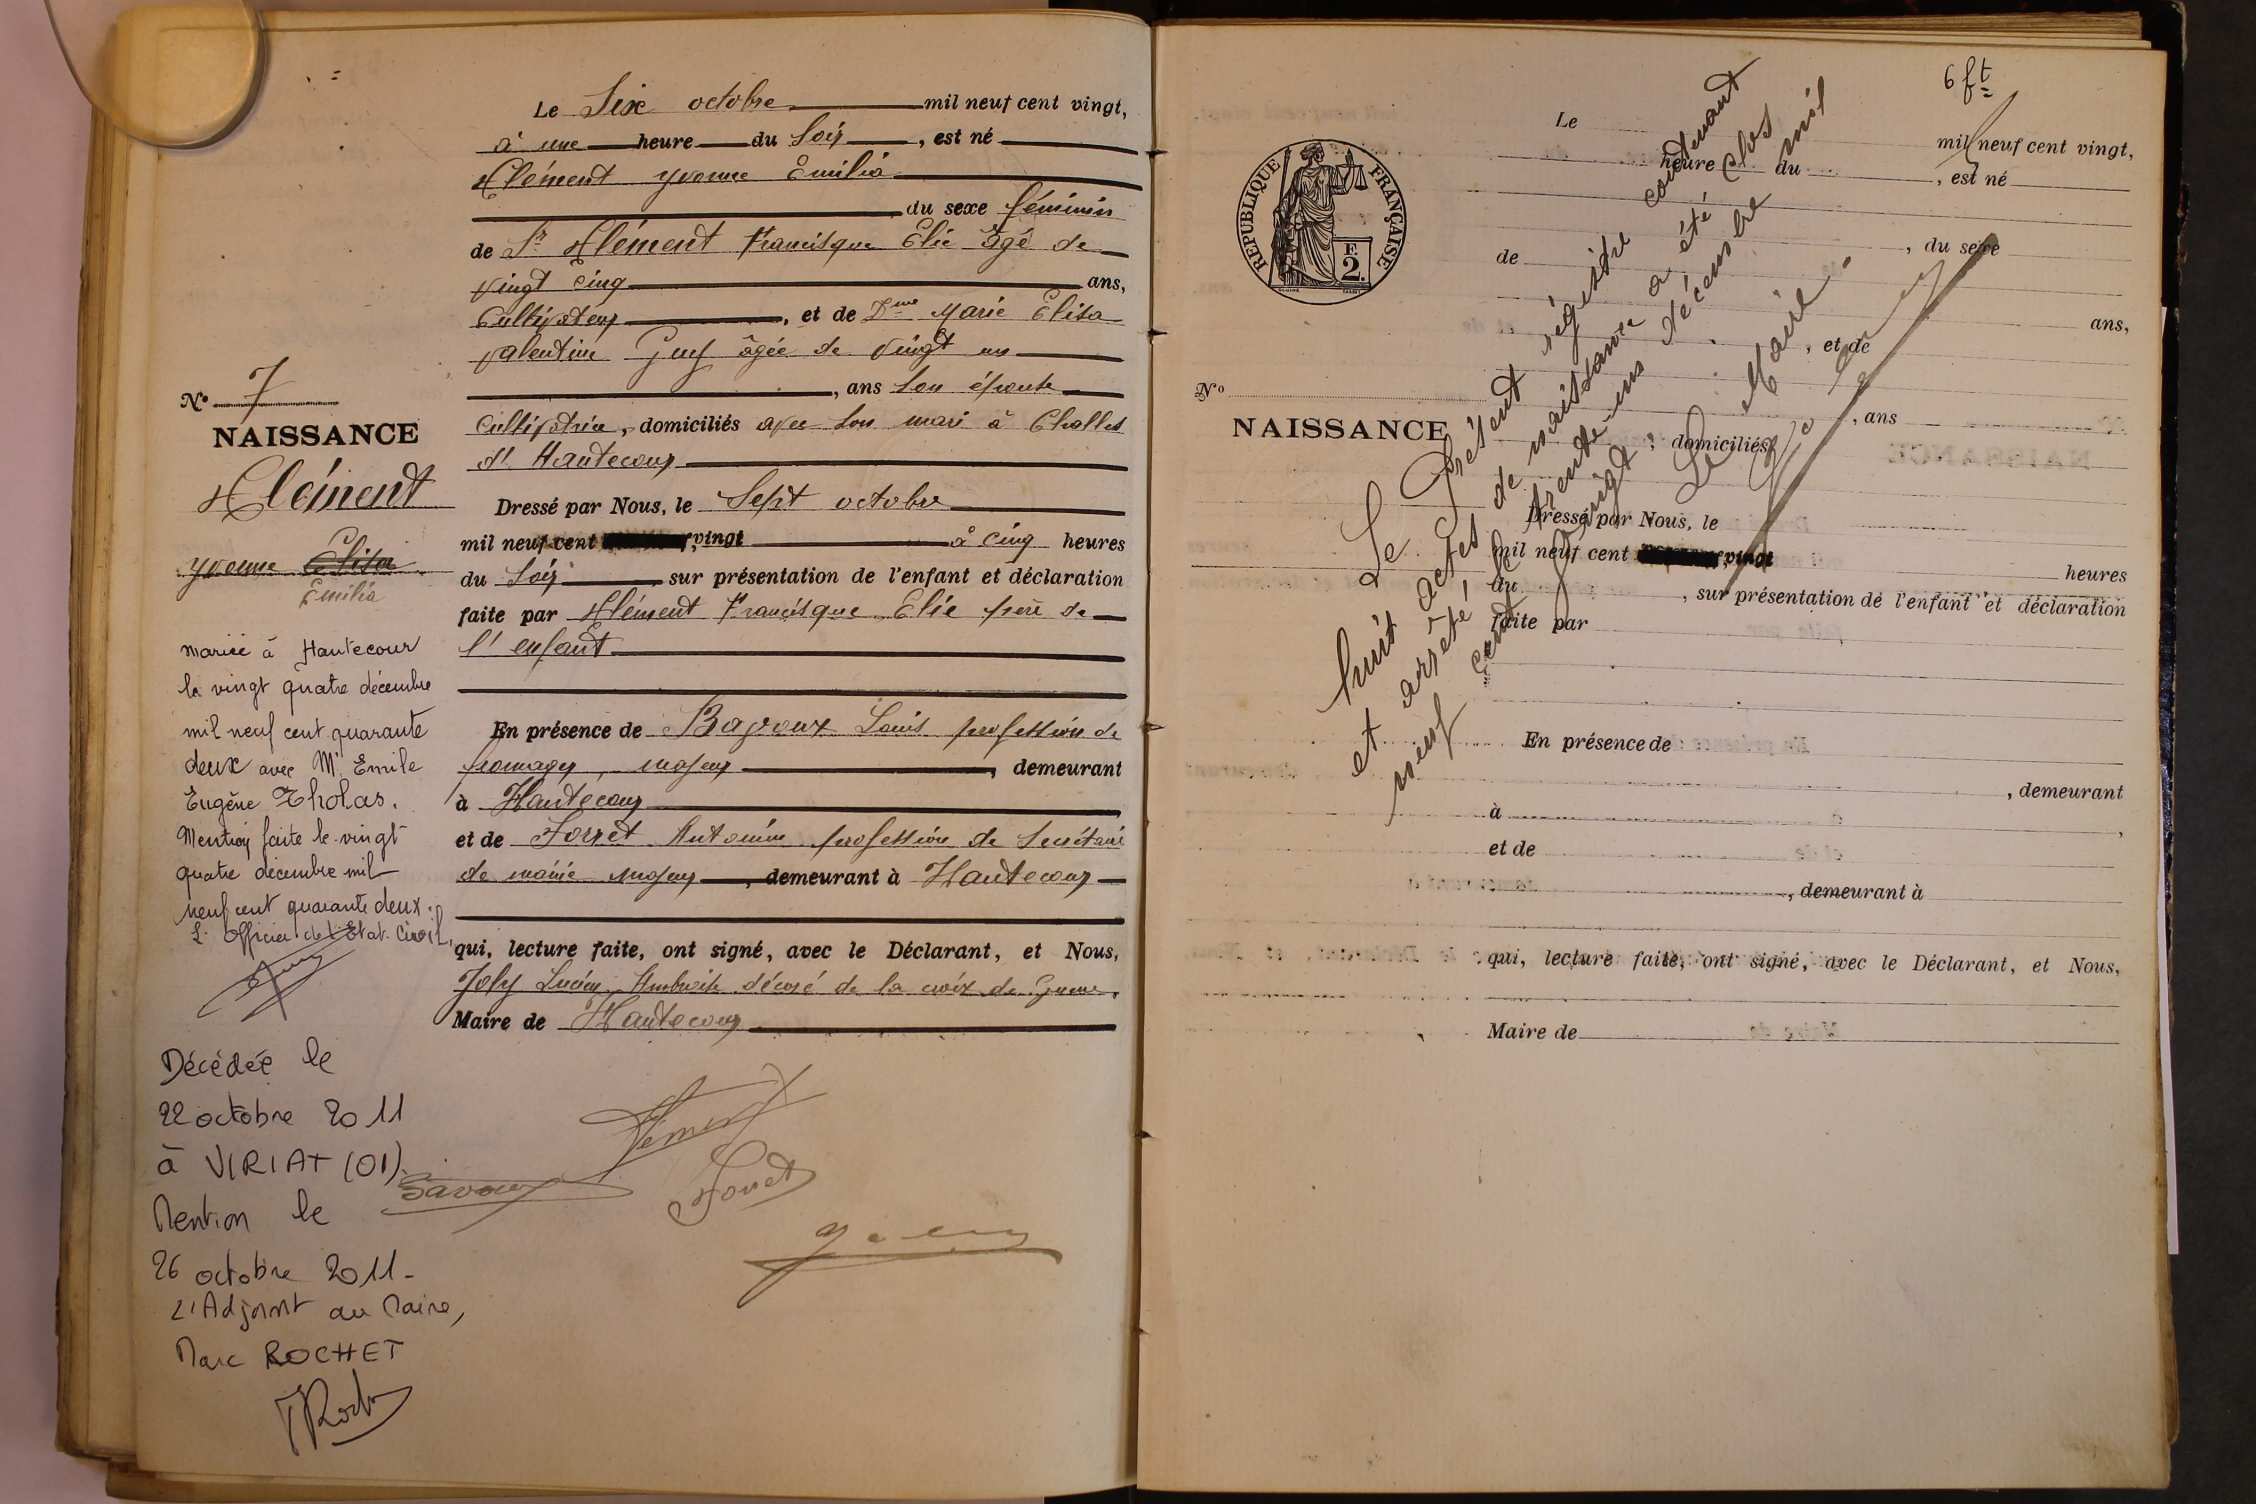 Le Six octobre mil neuf cent vingt,
à une heure du Soir, est né
Clément Yvonne Emilia
du sexe féminin
de Sr Clément Francisque Elie âgé de
vingt cinq ans,
Cultivateur, et de Dme Marie Elisa
Valentine Guy âgée de vingt un
, ans son épouse
Cultivatrice, domiciliés avec son mari à Challes
d' Hautecour
Dressé par Nous, le Sept octobre
mil neuf cent vingt à cinq heures
du Soir sur présentation de l'enfant et déclaration
faite par Clément Francisque Elie père de
l'enfant
En présence de Bavoux Louis profession de
fromager, majeur, demeurant
à Hautecour
et de Forret Antonin profession de Secrétaire
de mairie majeur, demeurant à Hautecour
qui, lecture faite, ont signé, avec le Déclarant, et Nous,
Joly Lucien Ambroise décoré de la croix de Guerre,
Maire de Hautecour
Clément
Bavoux
Forret
Joly
No 7
NAISSANCE
Clément
Yvonne Elisa
Emilia
mariée à Hautecour
le vingt quatre décembre
mil neuf cent quarante
deux avec Mr Emile
Eugène Tholas.
Mention faite le vingt
quatre décembre mil
neuf cent quarante deux.
L'Officier de l'Etat Civil,
Décédée le
22 octobre 2011
à VIRIAT (01).
Mention le
26 octobre 2011-
L'Adjoint au Maire,
Marc ROCHET
6 ft
RÉPUBLIQUE FRANÇAISE
E.
2.
Le mil neuf cent vingt,
heure du , est né
, du sexe
de
ans,
, et de
, ans
, domiciliés
No
NAISSANCE
Dressé par Nous, le
mil neuf cent vingt
heures
du , sur présentation de l'enfant et déclaration
faite par
En présence de
, demeurant
à ,
et de
, demeurant à
qui, lecture faite, ont signé, avec le Déclarant, et Nous,
Maire de
Le Présent régistre contenant
huit actes de naissance a été clos
et arrêté le trente-un décembre mil
neuf cent vingt.
Le Maire.
Joly